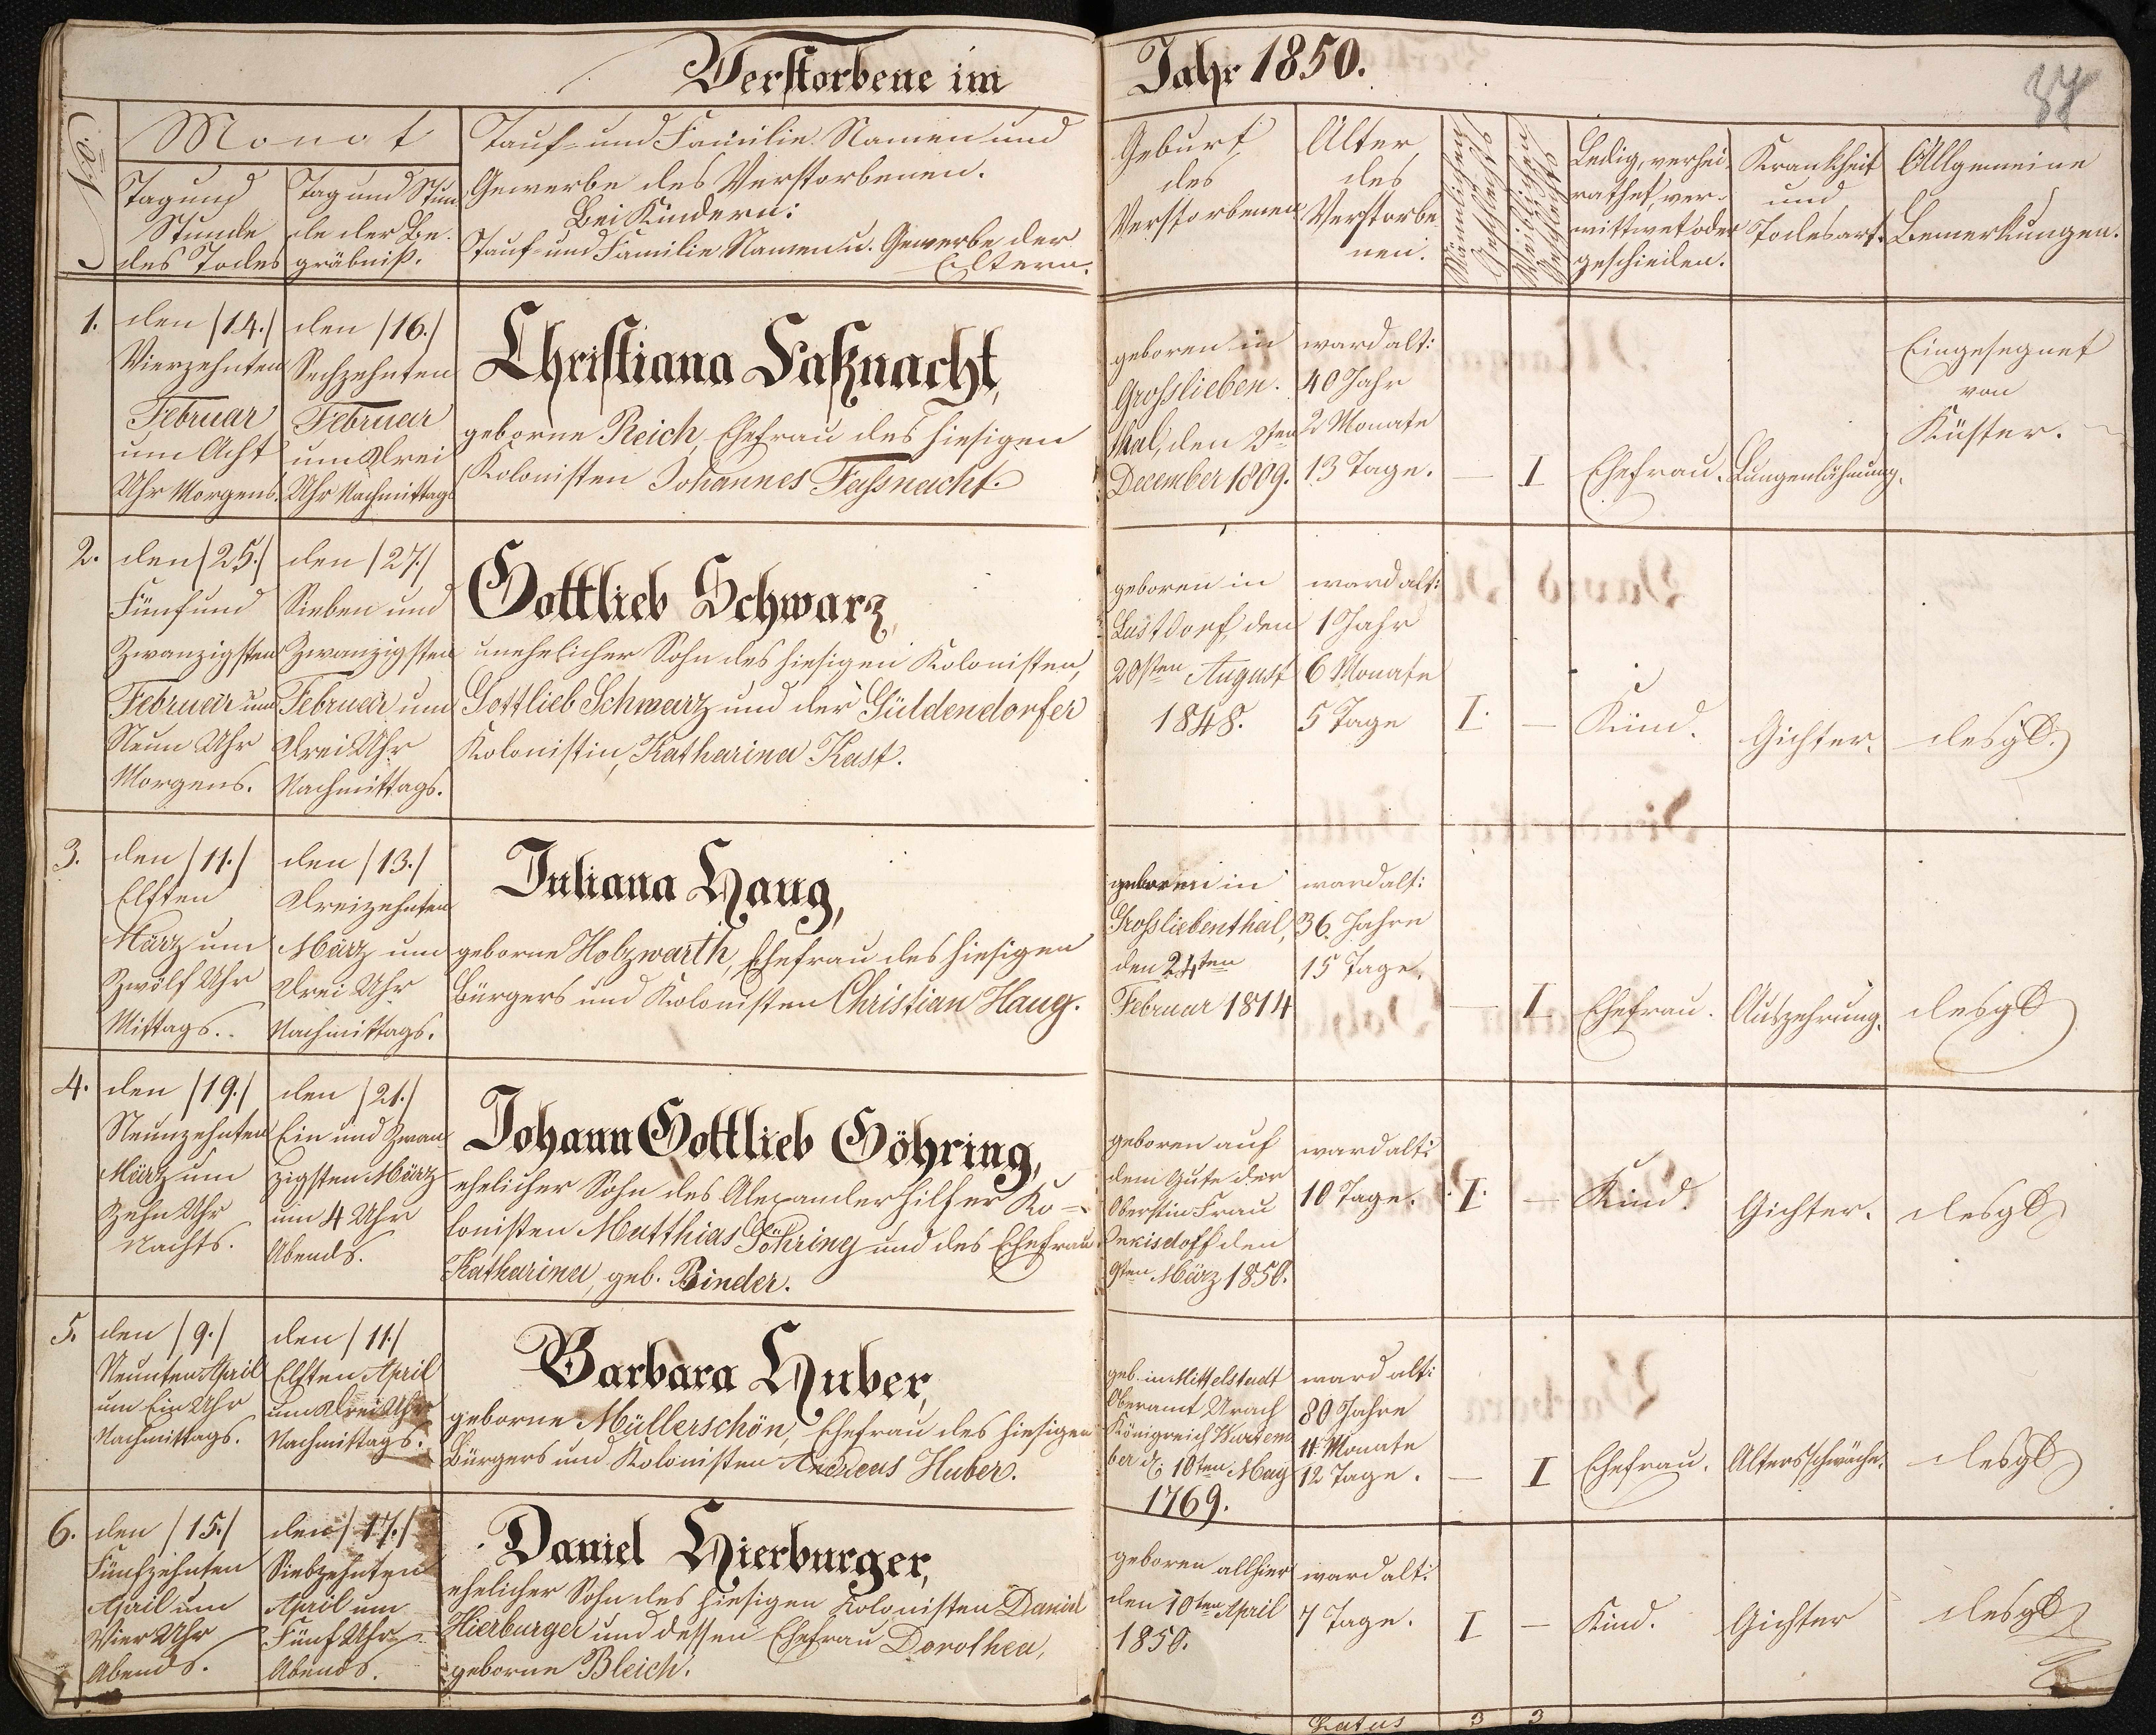 Verstorbene im Jahr 1850.
37
No.
Monat
Tag und
Stunde
des Todes
Tag und Stun
de der Be-
gräbniß.
Tauf- und Familie Namen und
Gewerbe des Verstorbenen.
Bei Kindern:
Tauf- und Familie Namen u. Gewerbe der
Eltern.
Geburt
des
Verstorbenen
Alter
des
Verstorbe
nen.
Männlichen
Geschlechts
Weiblichen
Geschlechts
Ledig, verhei-
rathet, ver-
wittwet oder
geschieden.
Krankheit
und
Todesart.
Allgemeine
Bemerkungen.
1.
den /14./
Vierzehnten
Februar
um Acht
Uhr Morgens.
den /16./
Sechzehnten
Februar
um Drei
Uhr Nachmittags
Christiana Faßnacht,
geborne Reich, Ehefrau des hiesigen
Kolonisten Johannes Fassnacht.
geboren in
Grosslieben-
thal, den 2ten
December 1809.
ward alt:
40 Jahr
2 Monate
13 Tage.
—
I
Ehefrau.
Lungenlähmung.
Eingesegnet
von
Küster.
2.
den /25./
Fünfund
Zwanzigsten
Februar um
Neun Uhr
Morgens.
den /27./
Sieben und
Zwanzigsten
Februar um
Drei Uhr
Nachmittags.
Gottlieb Schwarz,
unehelicher Sohn des hiesigen Kolonisten,
Gottlieb Schwarz und der Güldendorfer
Kolonistin, Katharina Kast.
geboren in
Lustdorf, den
20sten August
1848.
ward alt:
1 Jahr
6 Monate
5 Tage
I.
—
Kind.
Gichter.
desgl.
3.
den /11./
Elften
März um
Zwölf Uhr
Mittags.
den /13./
Dreizehnten
März um
Drei Uhr
Nachmittags.
Juliana Haug,
geborne Holzwarth, Ehefrau des hiesigen
Bürgers und Kolonisten Christian Haug.
geboren in
Grossliebenthal,
den 24ten
Februar 1814
ward alt:
36 Jahre
15 Tage.
—
I
Ehefrau.
Auszehrung.
desgl.
4.
den /19./
Neunzehnten
März um
Zehn Uhr
Nachts.
den /21./
Ein und Zwan
zigsten März
um 4 Uhr
Abends.
Johann Gottlieb Göhring,
ehelicher Sohn des Alexanderhilfer Ko-
lonisten Matthias Göhring und des Ehefrau
Katharina, geb. Binder.
geboren auf
dem Gute der
Oberstin Frau
den
9ten März 1850.
ward alt:
10 Tage.
I.
—
Kind.
Gichter.
desgl.
5.
den /9./
Neunten April
um Ein Uhr
Nachmittags.
den /11./
Elften April
um Drei Uhr
Nachmittags.
Barbara Huber,
geborne Müllerschön, Ehefrau des hiesigen
Bürgers und Kolonisten Andreas Huber.
geb. in Mittelstadt
Oberamt Urach
Königreich Würtem
ber d. 10ten May
1769.
ward alt:
80 Jahre
11 Monate
12 Tage.
—
I
Ehefrau.
Altersschwäche.
desgl.
6.
den /15./
Fünfzehnten
April um
Vier Uhr
Abends.
den /17./
Siebzehnten
April um
Fünf Uhr
Abends.
Daniel Hierburger,
ehelicher Sohn des hiesigen Kolonisten Daniel
Hierburger und dessen Ehefrau Dorothea,
geborne Bleich.
geboren allhier
den 10ten April
1850.
ward alt:
7 Tage.
I
—
Kind.
Gichter
desgl.
Latus 3 3